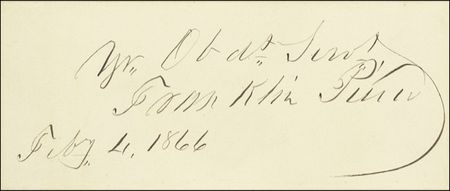 Yr. Ob dt. Servt
Franklin Pierce
Feby. 4. 1866